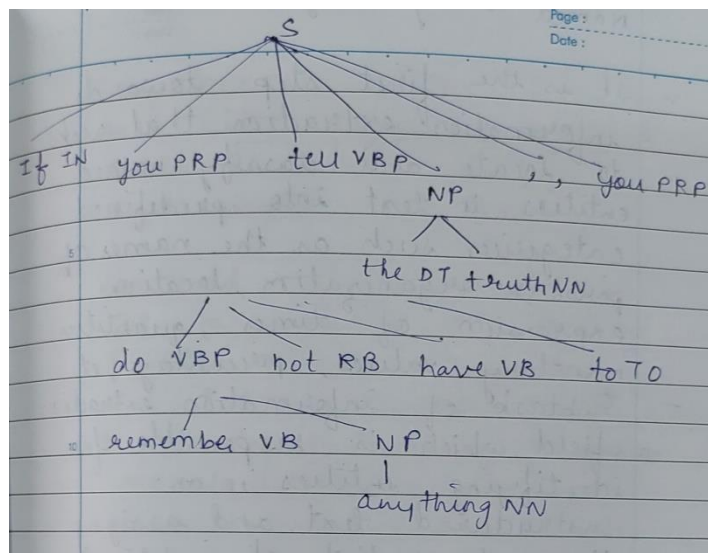 Page :
Date :
S
If IN you PRP tell VBP , , you PRP
NP
the DT truth NN
5
do VBP not RB have VB to TO
10
remember VB NP
anything NN